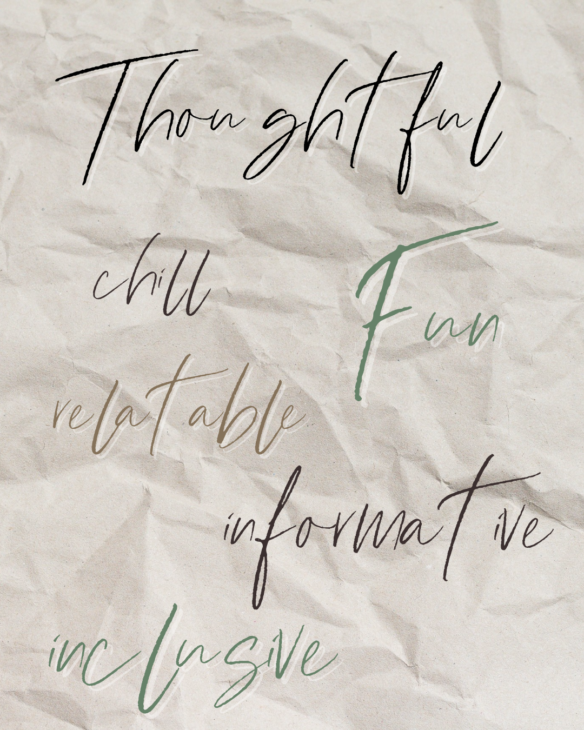 Thoughtful
chill
Fun
relatable
informative
inclusive